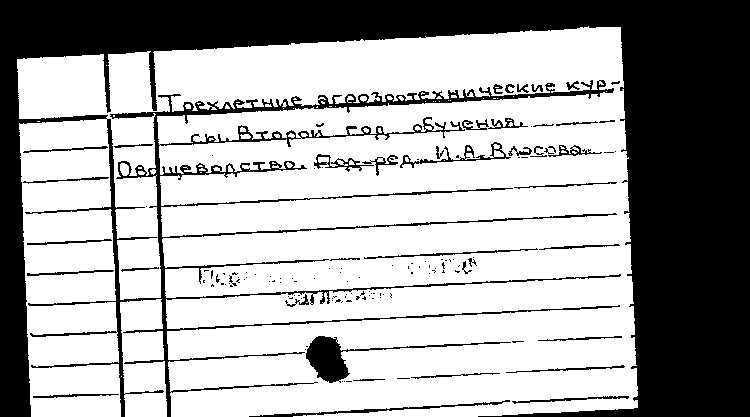 Трехлетние агрозоотехнические кур-
сы. Второй год обучения.
Овощеводство. Под ред. И.А. Власова.
заглавием